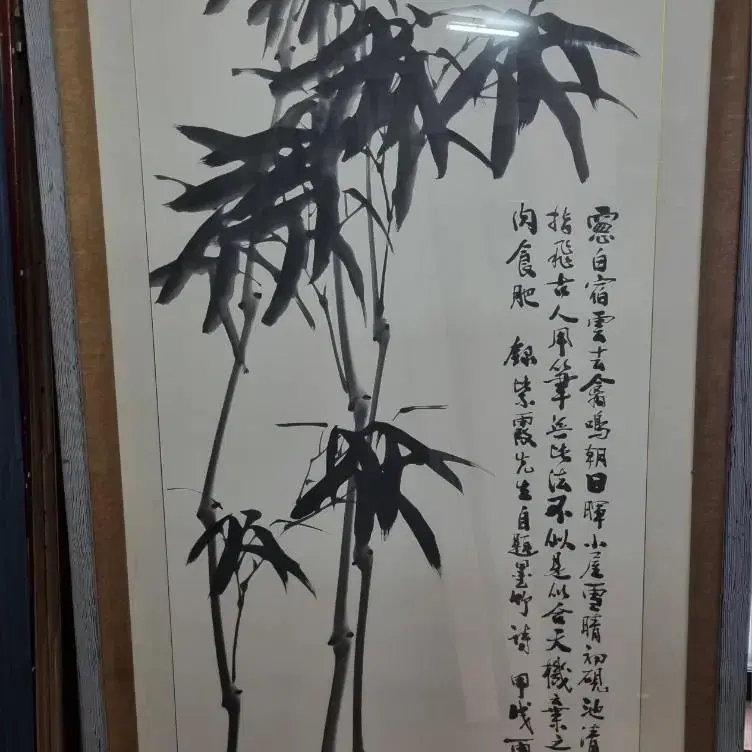 窻白宿雲去禽鳴朝日暉小屋雪晴初硯池清
指飛古人用筆无此法不似是似合天機棄之
肉食肥 錄紫霞先生自題墨竹詩 甲戌雨